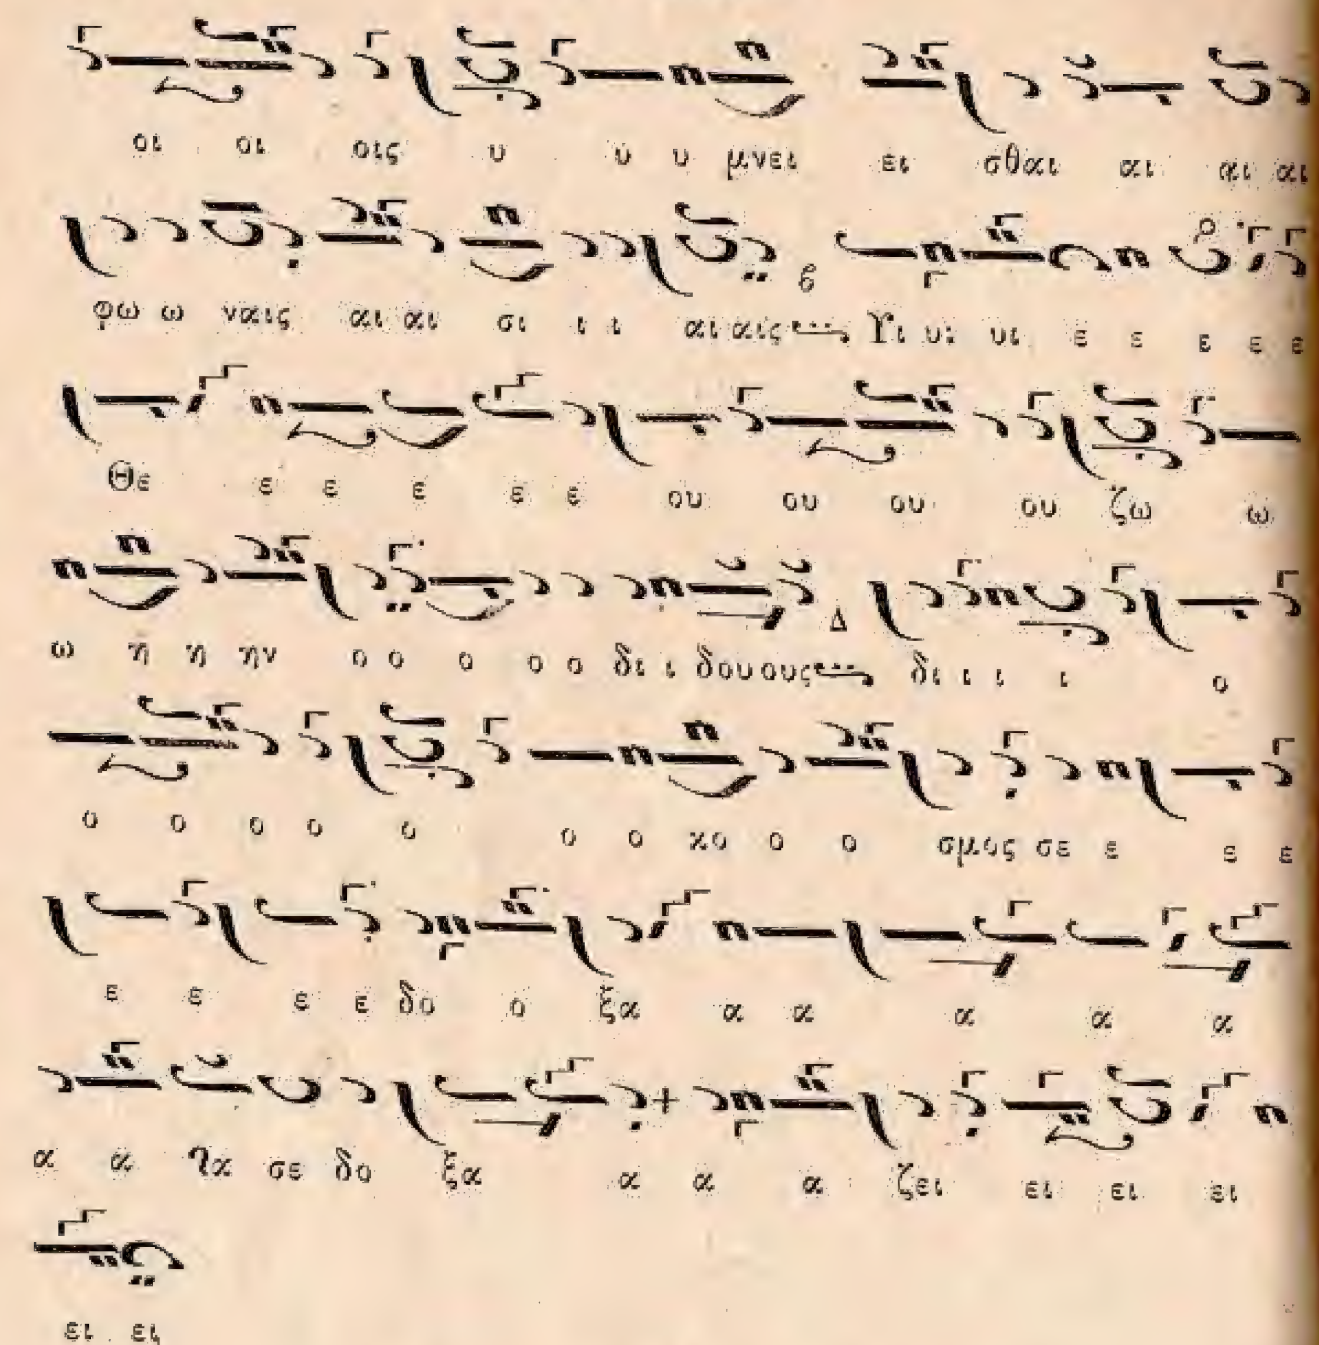 οι οι οις υ υ υ μνει ει σθαι αι αι αι
φω ω ναις αι αι σι ι ι αι αις Υι υι υι ε ε ε ε ε
Θε ε ε ε ε ε ου ου ου ου ζω ω
ω η η ην ο ο ο ο ο δι ι δουους δι ι ι ι ο
ο ο ο ο ο ο ο κο ο ο σμος σε ε ε ε
ε ε ε ε δο ο ξα α α α α α
α α σε δο ξα α α α ζει ει ει ει
ει ει